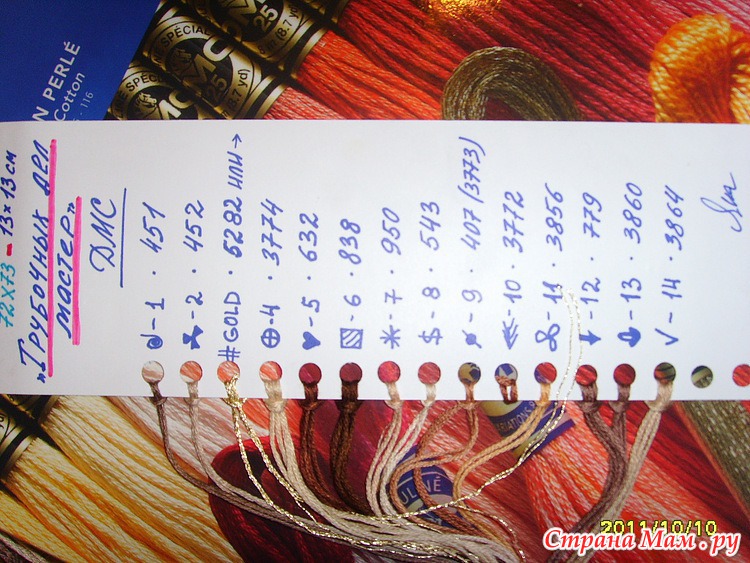 72x73 - 13x13 см
"Трубочных дел
мастер"
ДМС
1 · 451
2 · 452
#GOLD · 5282 или →
⊕ - 4 · 3774
♥ - 5 · 632
▨ - 6 · 838
✳ - 7 · 950
$ - 8 · 543
9 · 407 (3773)
10 · 3772
11 · 3856
12 · 779
13 · 3860
✓ - 14 · 3864
N PERLÉ
Cotton
116
SPÉCIAL
DMC
25
(8.7 yd)
2011/10/10
Страна Мам.ру